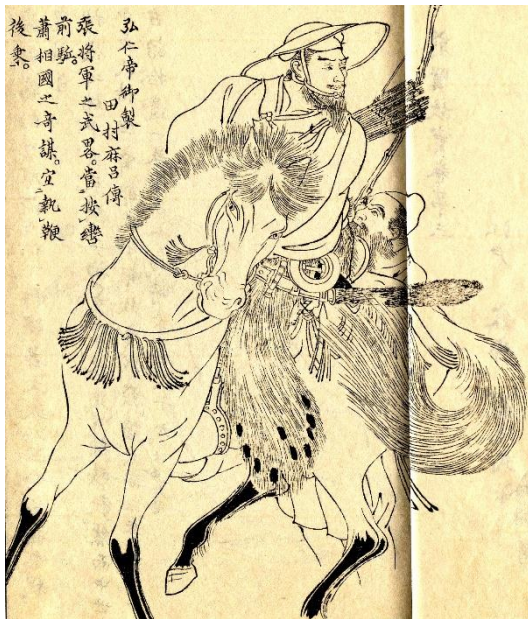 弘仁帝御製
田村麻呂傳
張將軍之武畧。當按轡
前駈。
蕭相國之奇謀。宜執鞭
後乘。